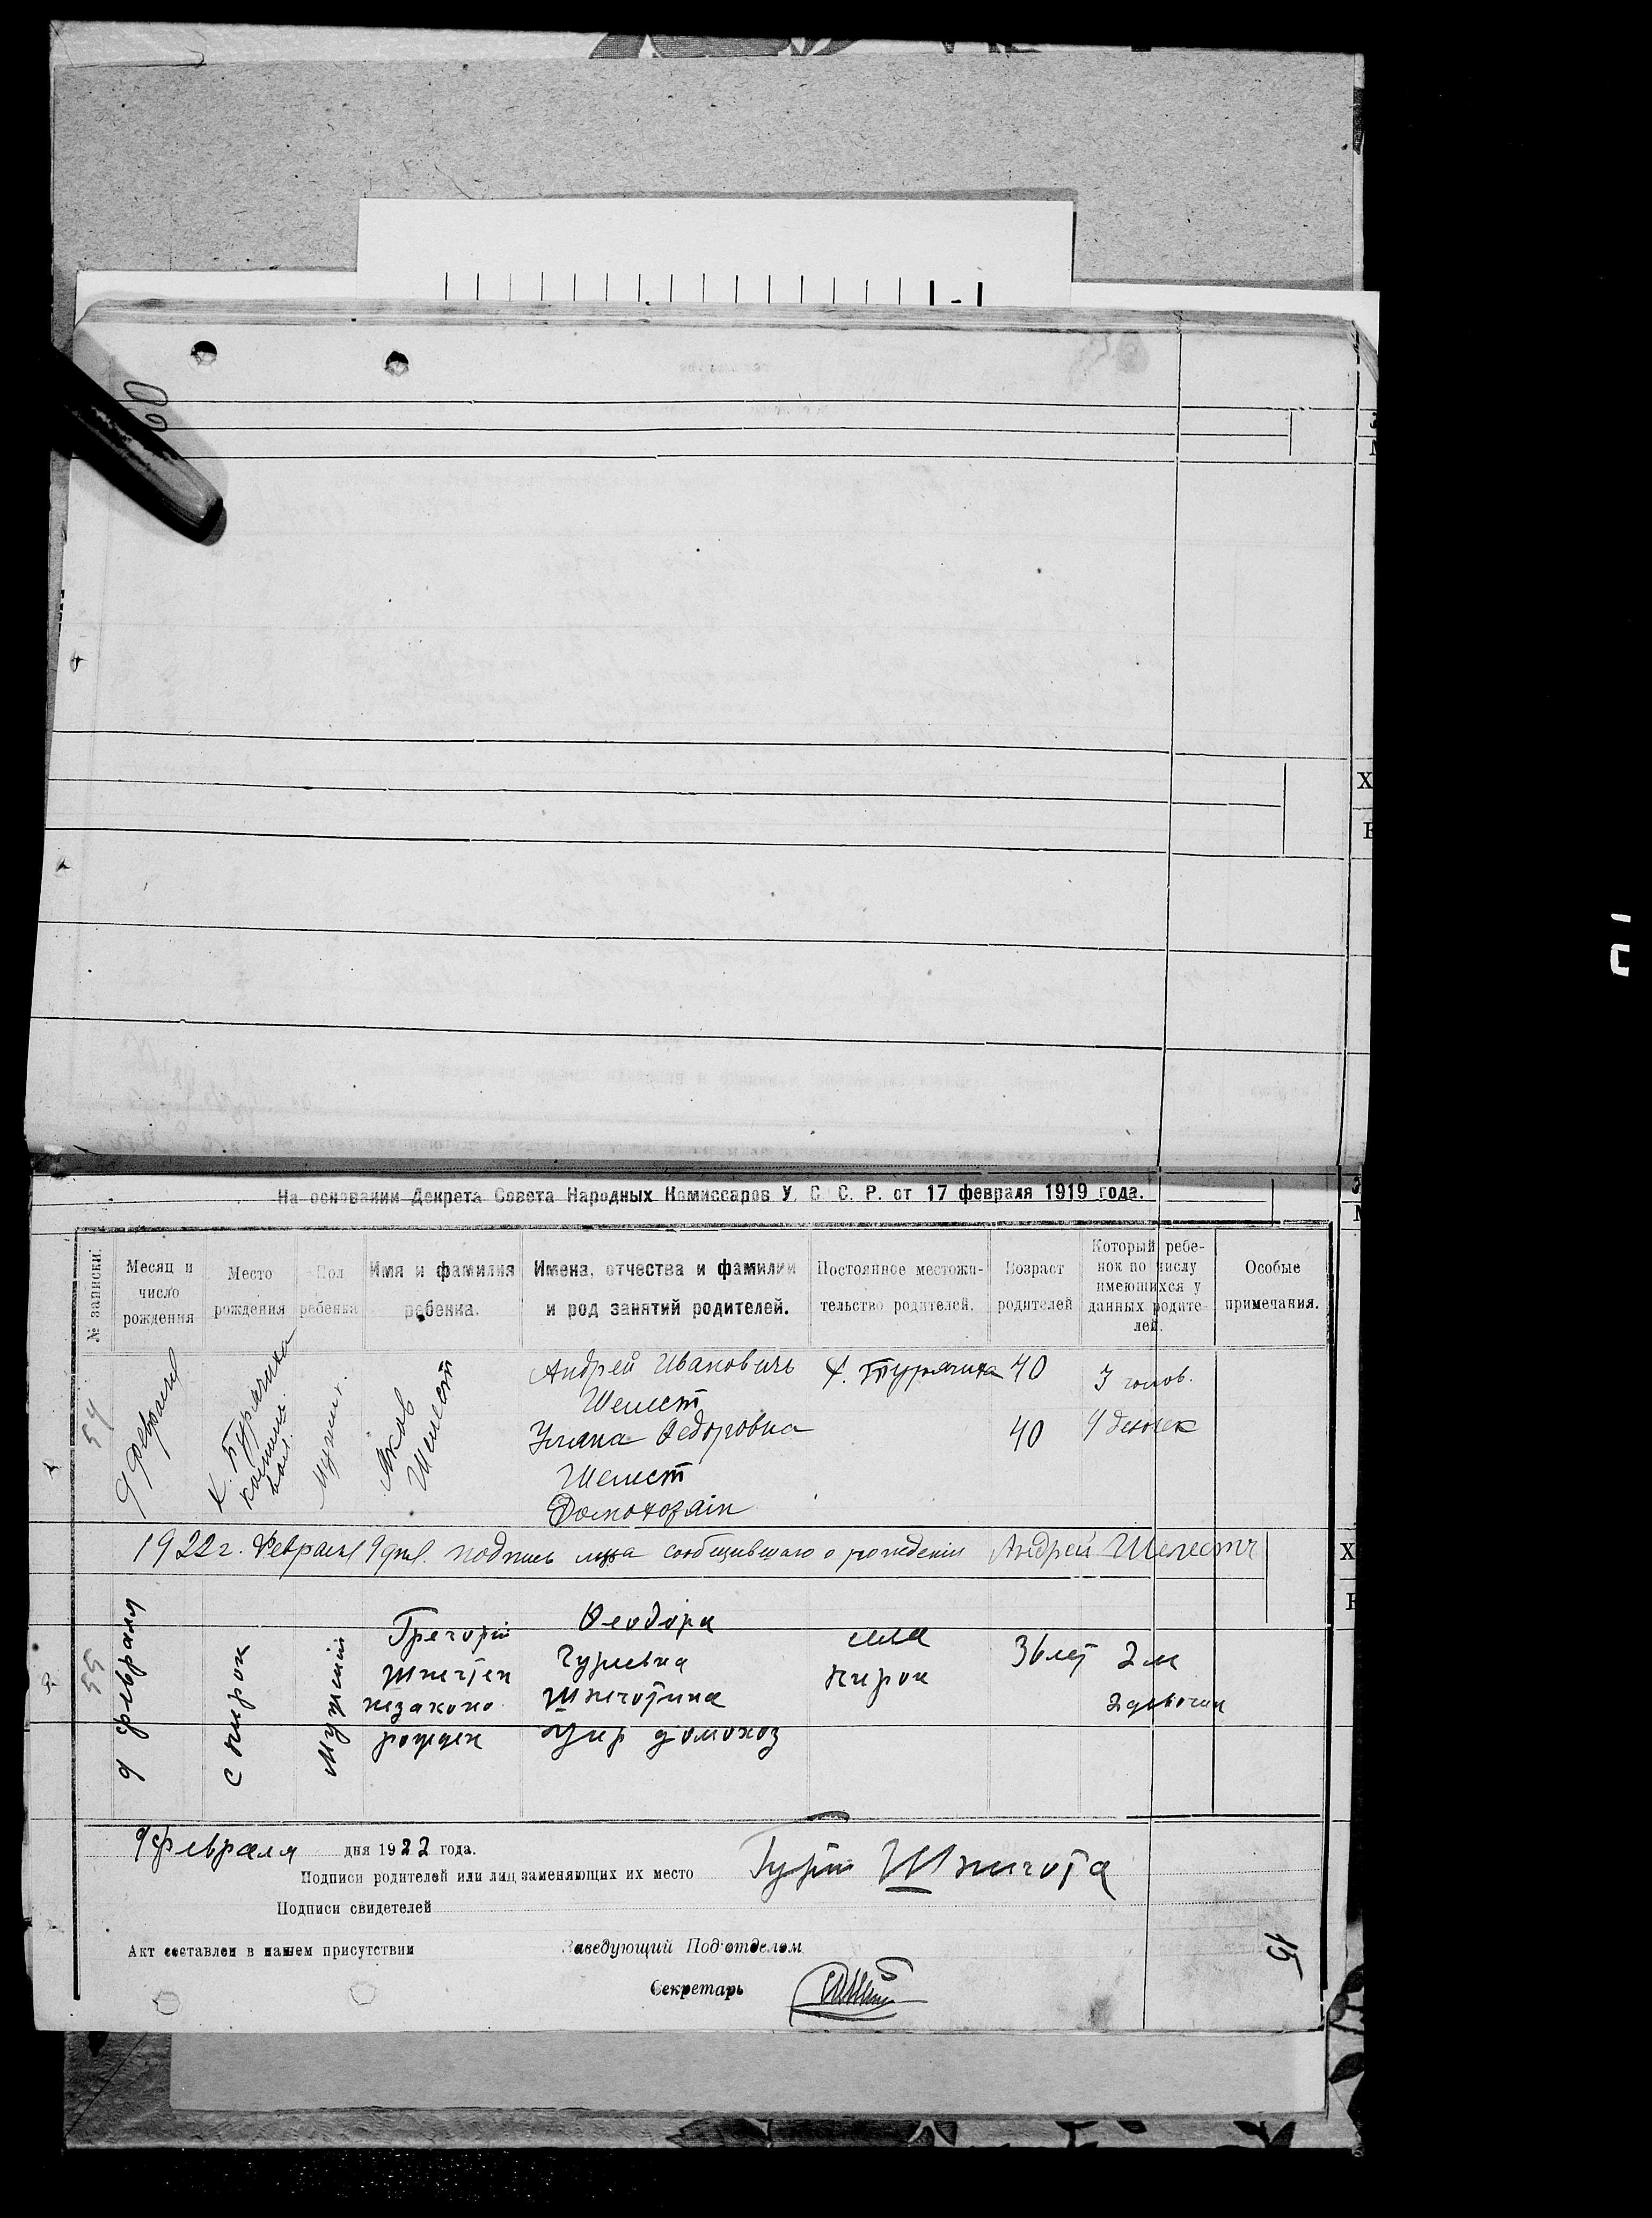 60
На основании Декрета Совета Народных Комиссаров У. С. С. Р. от 17 февраля 1919 года.
№ записки.
Месяц и число рождения
Место рождения
Пол ребенка
Имя и фамилия ребенка.
Имена, отчества и фамилии и род занятий родителей.
Постоянное местожительство родителей.
Возраст родителей
Который ребенок по числу имеющихся у данных родителей.
Особые примечания.
54
9 февраля
х. Бурячиха
Яков
Шелест
Андрей Иванович
Шелест
Ульяна Федоровна
Шелест
40
40
3
4
1922 г. Февраля 9 дня. подпись лица сообщившаго о рождении Андрей Шелест
55
9 февраля
с Пирок
Мужский
Григорий
незаконо
рожден
Феодора
Гурьевна
села
Пирок
36 лет
2 м
2 девочки
9 февраля дня 1922 года.
Подписи родителей или лиц заменяющих их место
Подписи свидетелей
Акт составлен в нашем присутствии
Заведующий Под'отделом
Секретарь